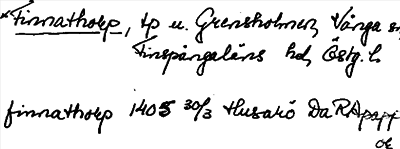 *Finnathorp, tp u. Grensholmen, Vånga sn,
Finspångaläns hd, Östg. l.
finnathorp 1405 30/3 Husarö Da RApapp
or